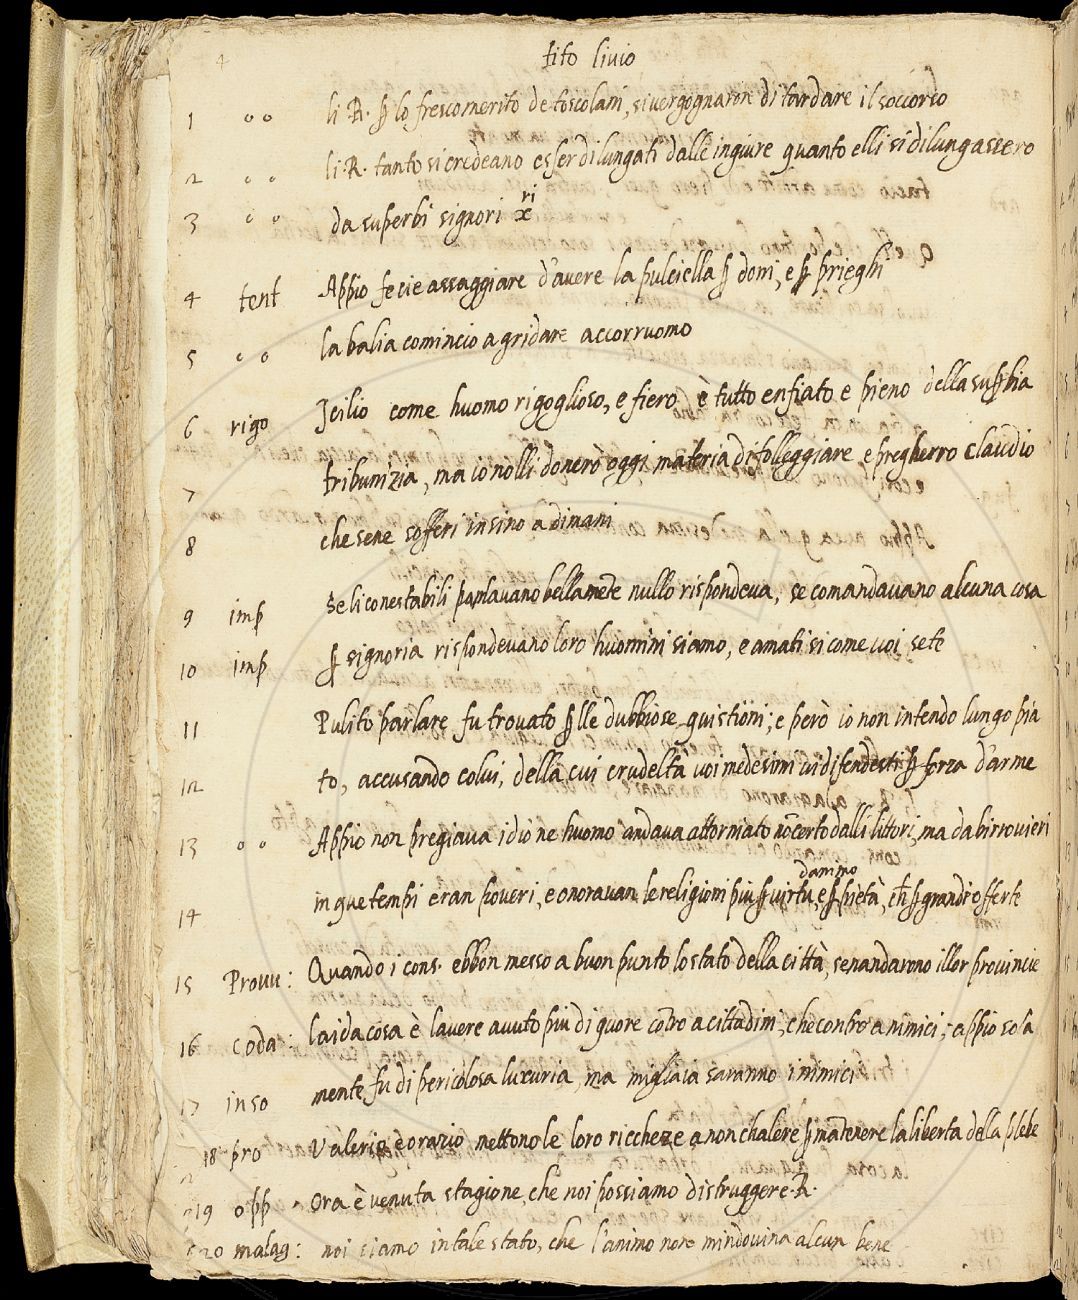 tito livio
1 o o li .R. ꝑ lo fresco merito de toscolani, si vergognaron di tardare il soccorso
2 o o li .R. tanto si credeano esser dilungati dalle ingiure quanto elli si dilungassero
3 o o da superbi signori xri
4 tent Appio fecie assaggiare d'avere la pulciella ꝑ doni, e ꝑ prieghi
5 o o la balia comincio a gridare accorruomo
6 rigo Jcilio come huomo rigoglioso, e fiero è tutto enfiato e pieno della supbia
7 tribunizia, ma io nolli donerò oggi materia di folleggiare e pregherro claudio
8 che sene sofferi insino a dimani
9 imp se li conestabili parlavano bellamete nullo rispondeva, se comandavano alcuna cosa
10 imp ꝑ signoria rispondevano loro huomini siamo, e amati sicome voi sete
11 Pulito parlare fu trovato ꝑlle dubbiose quistioni; e però io non intendo lungo pia
12 to, accusando colui, della cui crudeltà voi medesimi vi difendesti ꝑ forza d'arme
13 o o Appio non pregiava idio ne huomo andava attorniato nō certo dalli littori, ma da birrovieri
danimo
14 in que tempi eran poveri, e onoravan le religioni piu ꝑ virtu, e ꝑ pietà, ch̄ ꝑ grandi offerte
15 Provv: Quando i cons. ebbon messo a buon punto lo stato della città, senandarono illor provincie
16 coda: laida cosa è lavere avuto piu di quore cōtro a cittadini, che contro a nimici; appio sola
17 inso mente fu di pericolosa luxuria, ma migliaia saranno i nimici
18 pro Valerio, e orazio mettono le loro riccheze a non chalere ꝑ mātenere la liberta della plebe
19 opp Ora è venuta stagione, che noi possiamo distruggere .R.
20 malag: noi siamo in tale stato, che l'animo nōn mindovina alcun bene